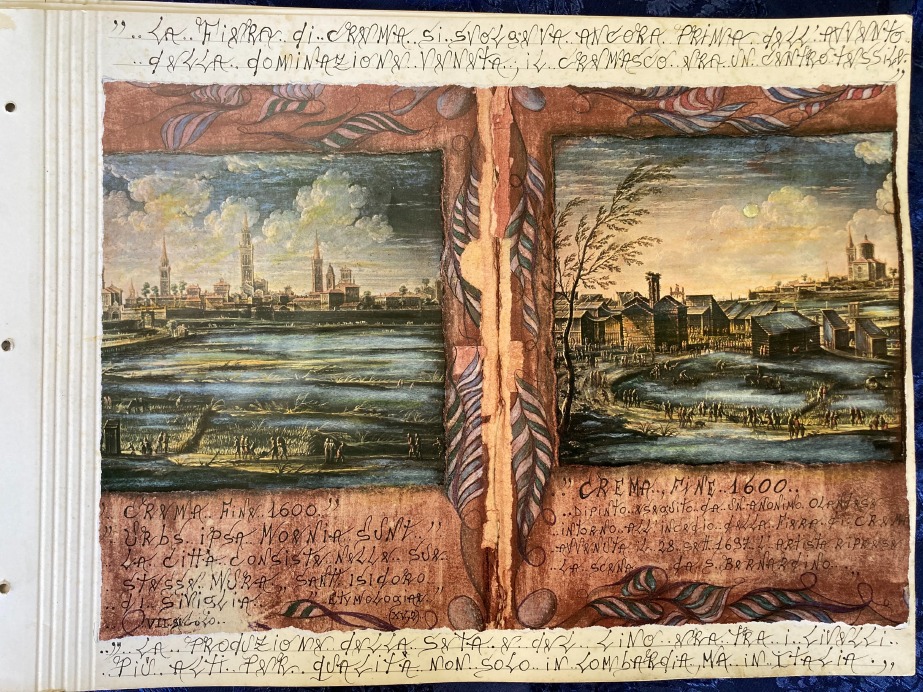 ,, .. LA .. FIERA . di .. CREMA .. Si .. SVOLGEVA .. ANCORA .. PRIMA .. dELL'AVVENTO
.. dELLA .. dOMINAZIONE .. VENETA .. ; iL .. CREMASCO .. ERA .. UN .. CENTRO .. TESSILE .. ,,
CREMA . FiNE . 1600 . ,,
" URBS . iPSA MOENiA SUNT . "
LA CiTTÀ CONSiSTE NELLE SUE
STESSE MURA . SANT . iSiDORO
di . SiViGLiA .. " ETYMOLOGiAE
VII SECOLO .. (XV,2)
" CREMA .. FiNE .. 1600 ..
.. DiPiNTO ESEGUiTO dA UN ANONiMO OLANdESE
iNTORNO ALL'iNCENdiO dELLA FiERA di CREMA
AVVENUTA iL 28 SETT 1697 . L'ARTiSTA RiPRESE
.. LA SCENA .. dA S . BERNARdiNO .. ,,
,, .. LA .. PRODUZiONE dELLA SETA E dEL .. LiNO ERA TRA i LiVELLi ..
PiÙ .. ALTi PER .. qUALiTÀ NON SOLO iN LOMBARdiA , MA iN iTALiA . ,,